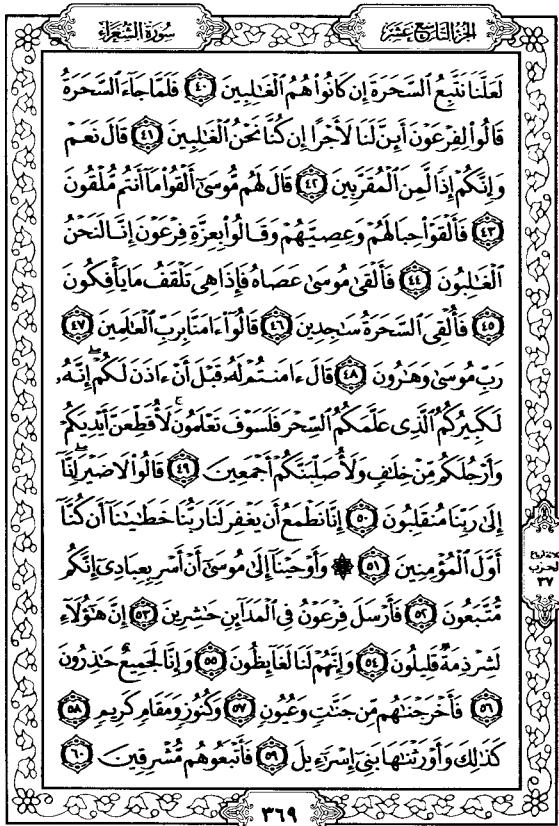 الجزء التاسع عشر
سورة الشعراء
لَعَلَّنَا نَتَّبِعُ السَّحَرَةَ إِن كَانُوا۟ هُمُ الْغَٰلِبِينَ ٤٠ فَلَمَّا جَآءَ السَّحَرَةُ
قَالُوا۟ لِفِرْعَوْنَ أَئِنَّ لَنَا لَأَجْرًا إِن كُنَّا نَحْنُ الْغَٰلِبِينَ ٤١ قَالَ نَعَمْ
وَإِنَّكُمْ إِذًا لَّمِنَ الْمُقَرَّبِينَ ٤٢ قَالَ لَهُم مُّوسَىٰٓ أَلْقُوا۟ مَآ أَنتُم مُّلْقُونَ
٤٣ فَأَلْقَوْا۟ حِبَالَهُمْ وَعِصِيَّهُمْ وَقَالُوا۟ بِعِزَّةِ فِرْعَوْنَ إِنَّا لَنَحْنُ
الْغَٰلِبُونَ ٤٤ فَأَلْقَىٰ مُوسَىٰ عَصَاهُ فَإِذَا هِىَ تَلْقَفُ مَا يَأْفِكُونَ
٤٥ فَأُلْقِىَ السَّحَرَةُ سَٰجِدِينَ ٤٦ قَالُوٓا۟ ءَامَنَّا بِرَبِّ الْعَٰلَمِينَ ٤٧
رَبِّ مُوسَىٰ وَهَٰرُونَ ٤٨ قَالَ ءَامَنتُمْ لَهُۥ قَبْلَ أَنْ ءَاذَنَ لَكُمْ ۖ إِنَّهُۥ
لَكَبِيرُكُمُ الَّذِى عَلَّمَكُمُ السِّحْرَ فَلَسَوْفَ تَعْلَمُونَ ۚ لَأُقَطِّعَنَّ أَيْدِيَكُمْ
وَأَرْجُلَكُم مِّنْ خِلَٰفٍ وَلَأُصَلِّبَنَّكُمْ أَجْمَعِينَ ٤٩ قَالُوا۟ لَا ضَيْرَ ۖ إِنَّآ
إِلَىٰ رَبِّنَا مُنقَلِبُونَ ٥٠ إِنَّا نَطْمَعُ أَن يَغْفِرَ لَنَا رَبُّنَا خَطَٰيَٰنَآ أَن كُنَّآ
أَوَّلَ الْمُؤْمِنِينَ ٥١ ۞ وَأَوْحَيْنَآ إِلَىٰ مُوسَىٰٓ أَنْ أَسْرِ بِعِبَادِىٓ إِنَّكُم
مُّتَّبَعُونَ ٥٢ فَأَرْسَلَ فِرْعَوْنُ فِى الْمَدَآئِنِ حَٰشِرِينَ ٥٣ إِنَّ هَٰٓؤُلَآءِ
لَشِرْذِمَةٌ قَلِيلُونَ ٥٤ وَإِنَّهُمْ لَنَا لَغَآئِظُونَ ٥٥ وَإِنَّا لَجَمِيعٌ حَٰذِرُونَ
٥٦ فَأَخْرَجْنَٰهُم مِّن جَنَّٰتٍ وَعُيُونٍ ٥٧ وَكُنُوزٍ وَمَقَامٍ كَرِيمٍ ٥٨
كَذَٰلِكَ وَأَوْرَثْنَٰهَا بَنِىٓ إِسْرَٰٓءِيلَ ٥٩ فَأَتْبَعُوهُم مُّشْرِقِينَ ٦٠
الحزب
٣٧
٣٦٩